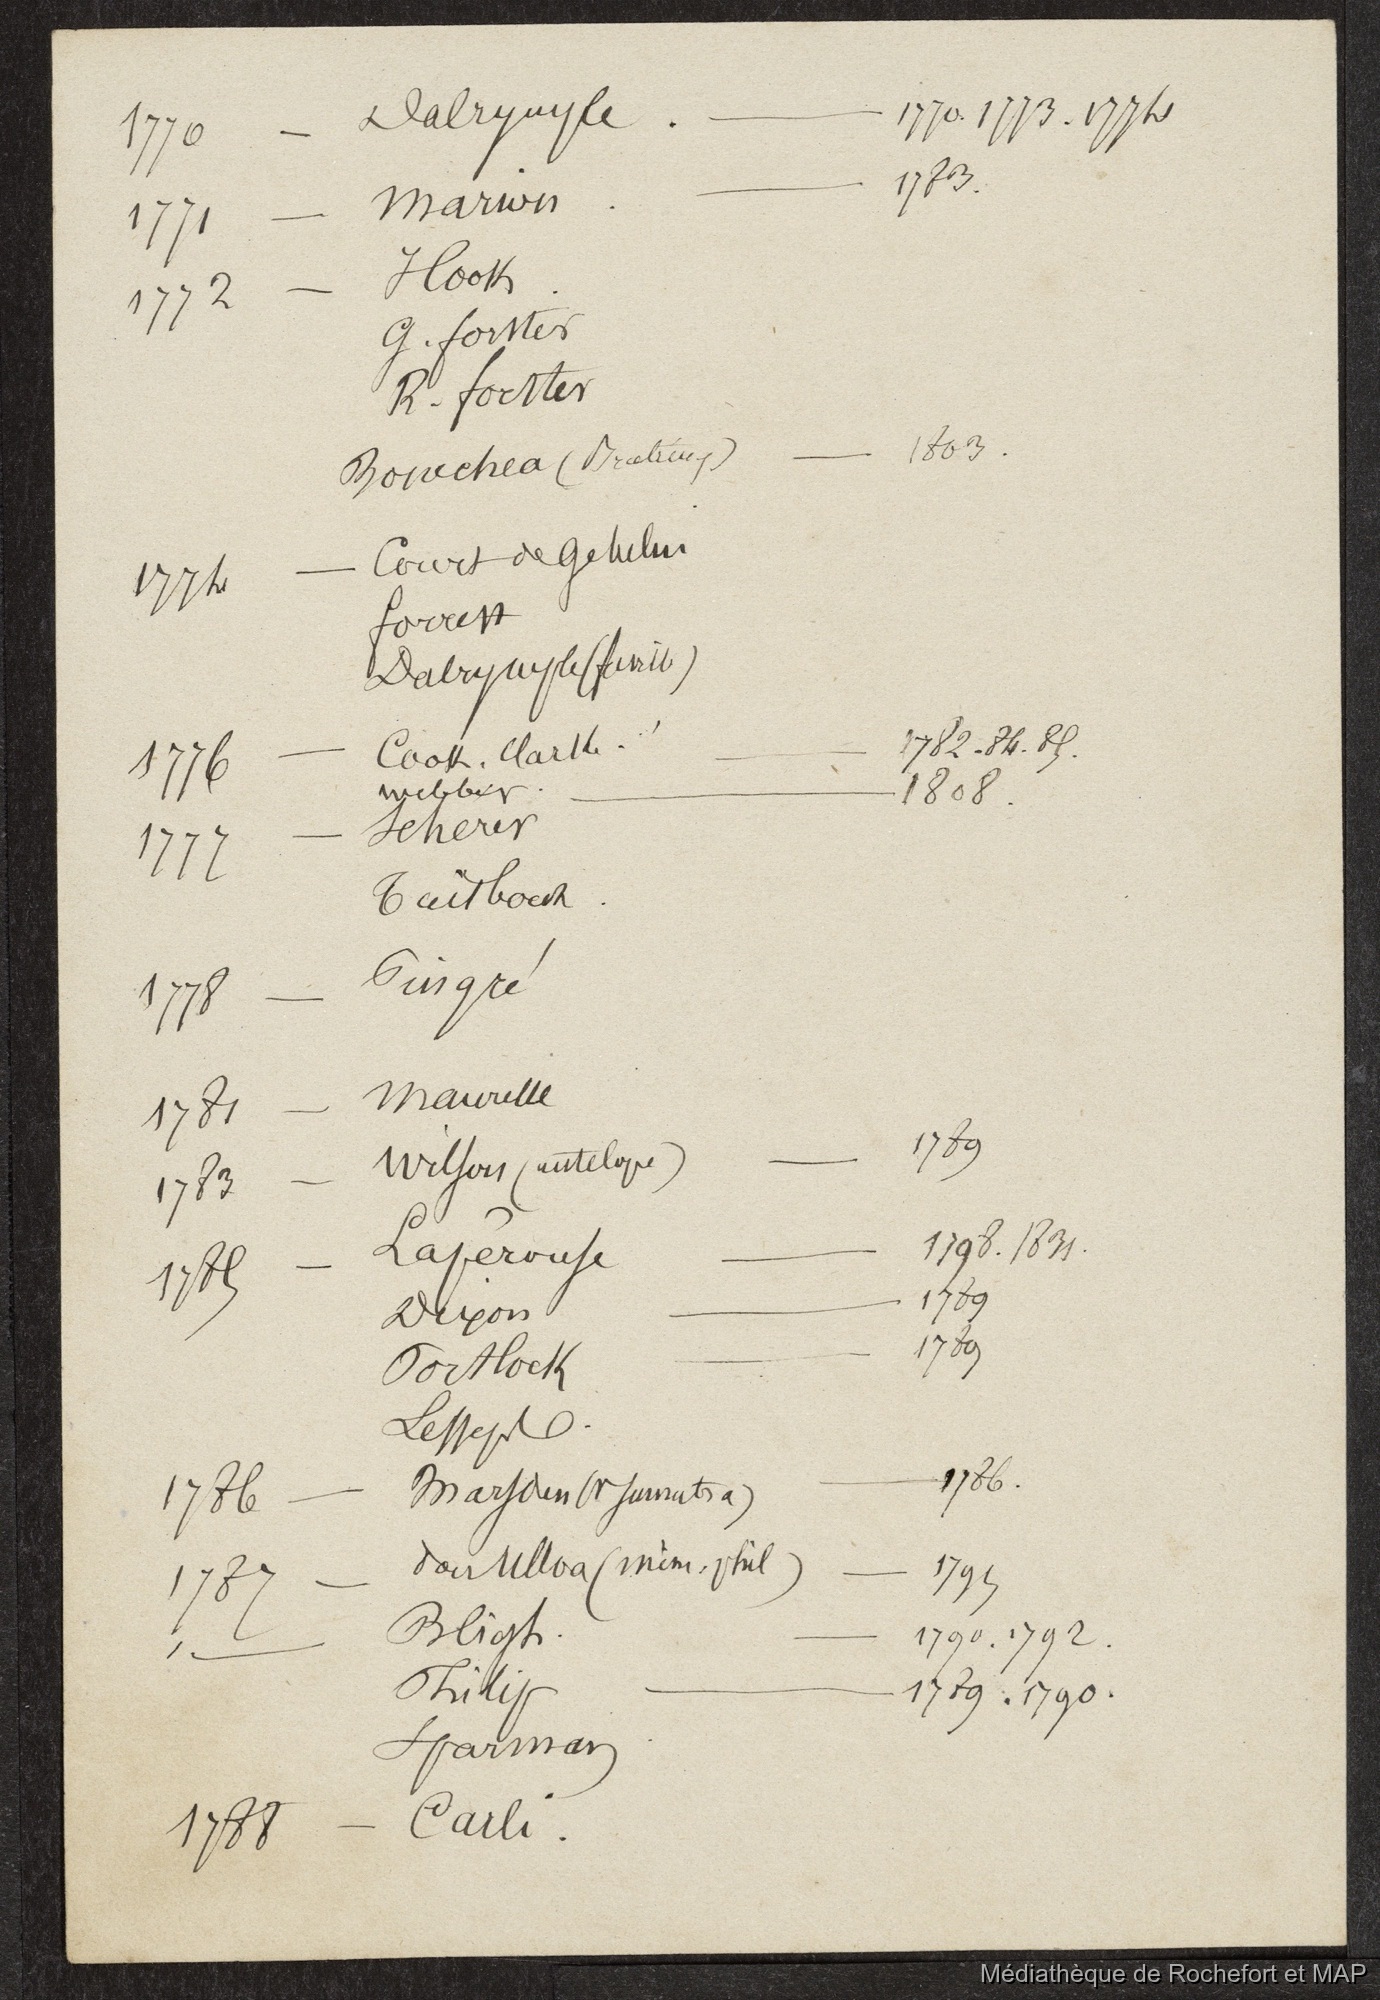 1770 — Dalrymple . — 1770. 1773. 1774
1771 — Marion . — 1783.
1772 — Hook .
G. forster
R. forster
Bouechea ( ) — 1803.
1774 — Court de Gebelin
forrest
Dalrymple
1776 — Cook. Clarke . — 1782. 84. 85.
webber . — 1808.
1777 — Scherer
Taitbout .
1778 — Pingré
1781 — Maurelle
1783 — Wilson (antelope) — 1789
1785 — Lapérouse — 1798. 1831.
Dixon — 1789
Portlock — 1789
Lesseps .
1786 — Marsden (Sumatra) — 1786.
1787 — don Ulloa (mém. phil) — 1795
' — Bligh . — 1790. 1792.
Philip — 1789. 1790.
Sparman
1788 — Carli .
Médiathèque de Rochefort et MAP